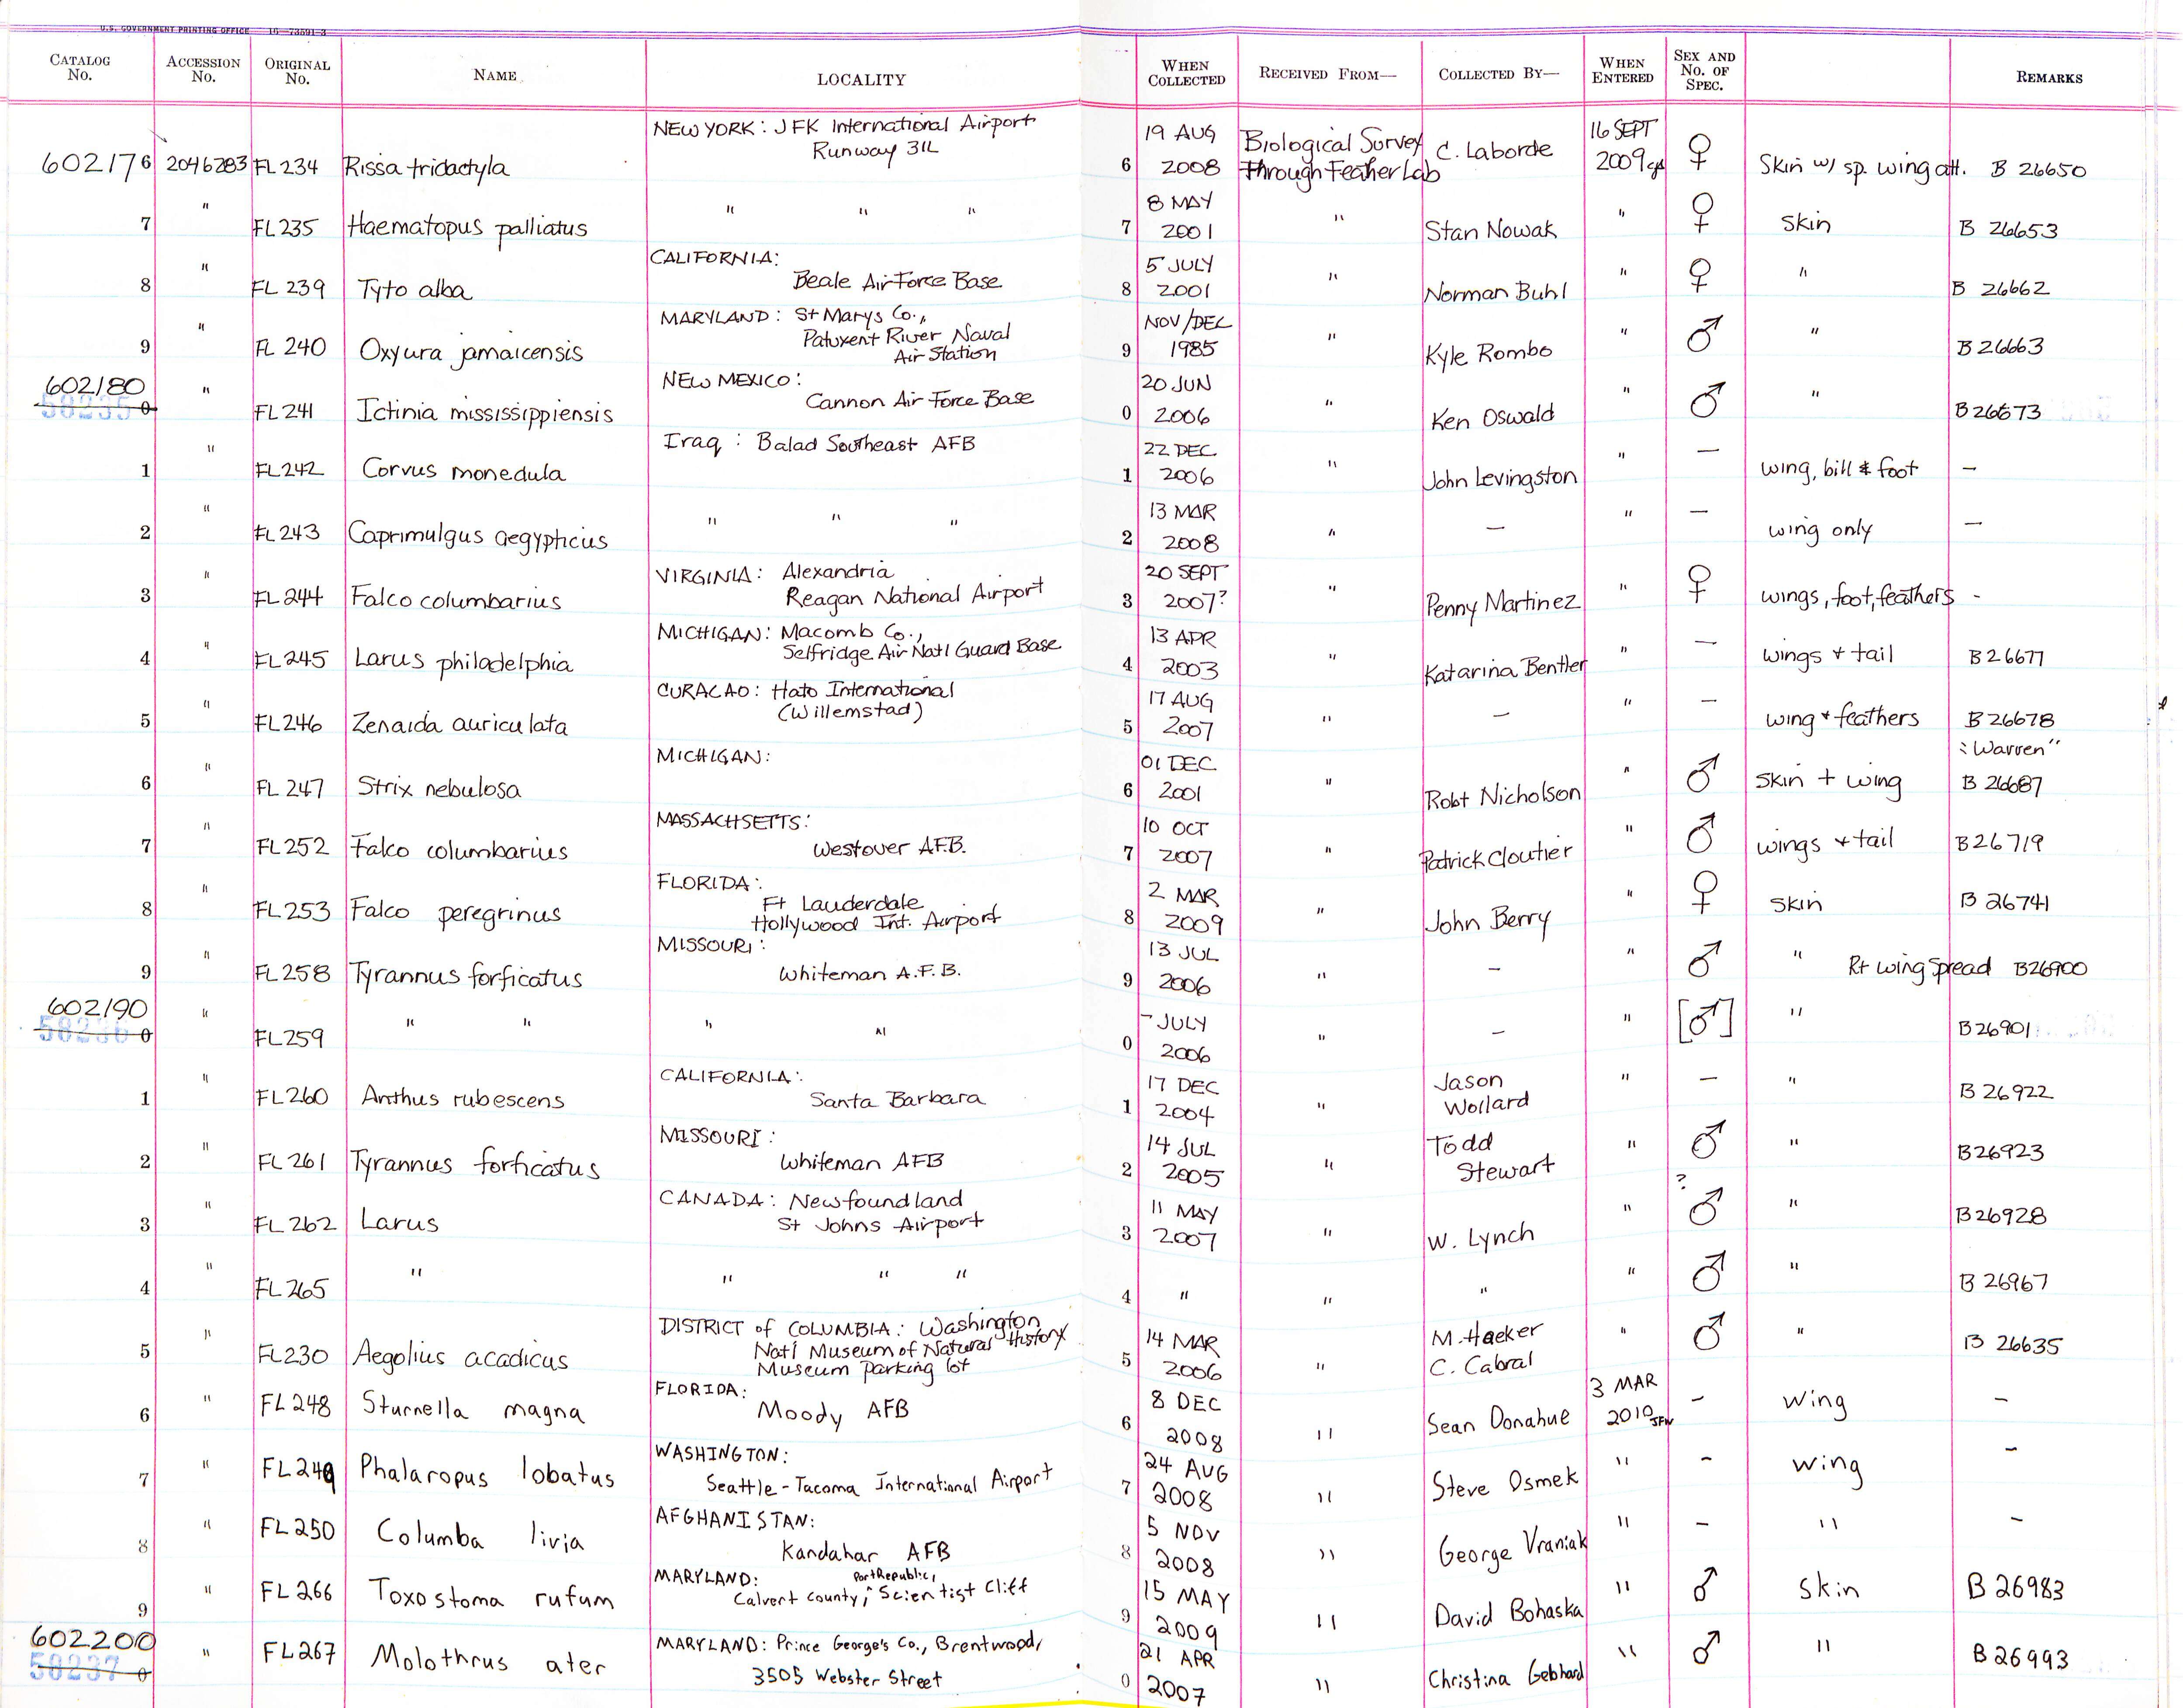 U.S. GOVERNMENT PRINTING OFFICE 16—73591-3
CATALOG No. ACCESSION No. ORIGINAL No. NAME LOCALITY WHEN COLLECTED RECEIVED FROM— COLLECTED BY— WHEN ENTERED SEX AND No. OF SPEC. REMARKS
NEW YORK: JFK International Airport
Runway 31L
602176 2046283 FL 234 Rissa tridactyla 6 19 AUG 2008 Biological Survey Through Feather Lab C. Laborde 16 SEPT 2009 ♀ Skin w/ sp. wing att. B 26650
7 " FL235 Haematopus palliatus " " " 7 8 MAY 2001 " Stan Nowak " ♀ skin B 26653
CALIFORNIA:
Beale Air Force Base
8 " FL 239 Tyto alba 8 5 JULY 2001 " Norman Buhl " ♀ " B 26662
MARYLAND: St Marys Co.,
Patuxent River Naval
Air Station
9 " FL 240 Oxyura jamaicensis 9 NOV/DEC 1985 " Kyle Rombo " ♂ " B 26663
NEW MEXICO:
Cannon Air Force Base
602180 58235 0 " FL241 Ictinia mississippiensis 0 20 JUN 2006 " Ken Oswald " ♂ " B26673
Iraq: Balad Southeast AFB
1 " FL242 Corvus monedula 1 22 DEC 2006 " John Levingston " — wing, bill & foot —
2 " FL243 Caprimulgus aegypticus " " " 2 13 MAR 2008 " — " — wing only —
VIRGINIA: Alexandria
Reagan National Airport
3 " FL244 Falco columbarius 3 20 SEPT 2007? " Penny Martinez " ♀ wings, foot, feathers -
MICHIGAN: Macomb Co.,
Selfridge Air Nat'l Guard Base
4 " FL245 Larus philadelphia 4 13 APR 2003 " Katarina Bentler " — wings + tail B26677
CURACAO: Hato International
(Willemstad)
5 " FL246 Zenaida auriculata 5 17 AUG 2007 " — " — wing + feathers B26678
MICHIGAN: "Warren"
6 " FL 247 Strix nebulosa 6 01 DEC 2001 " Robt Nicholson " ♂ skin + wing B 26687
MASSACHSETTS:
Westover A.F.B.
7 " FL252 Falco columbarius 7 10 OCT 2007 " Patrick Cloutier " ♂ wings + tail B26719
FLORIDA:
Ft Lauderdale
Hollywood Int. Airport
8 " FL253 Falco peregrinus 8 2 MAR 2009 " John Berry " ♀ skin B 26741
MISSOURI:
Whiteman A.F.B.
9 " FL258 Tyrannus forficatus 9 13 JUL 2006 " — " ♂ " Rt wing spread B26900
602190 58236 0 " FL259 " " " " 0 - JULY 2006 " — " [♂] " B26901
CALIFORNIA:
Santa Barbara
1 " FL260 Anthus rubescens 1 17 DEC 2004 " Jason Wollard " — " B 26922
MISSOURI:
Whiteman AFB
2 " FL261 Tyrannus forficatus 2 14 JUL 2005 " Todd Stewart " ♂ " B26923
CANADA: Newfoundland
St Johns Airport
3 " FL262 Larus 3 11 MAY 2007 " W. Lynch " ? ♂ " B26928
4 " FL265 " " " " 4 " " " " ♂ " B 26967
DISTRICT of COLUMBIA: Washington
Nat'l Museum of Natural History
Museum parking lot
5 " FL230 Aegolius acadicus 5 14 MAR 2006 " M. Haeker C. Cabral " ♂ " B 26635
FLORIDA:
Moody AFB
6 " FL248 Sturnella magna 6 8 DEC 2008 " Sean Donahue 3 MAR 2010 JFW - wing —
WASHINGTON:
Seattle-Tacoma International Airport
7 " FL249 Phalaropus lobatus 7 24 AUG 2008 " Steve Osmek " - wing —
AFGHANISTAN:
Kandahar AFB
8 " FL250 Columba livia 8 5 NOV 2008 " George Vraniak " - " —
MARYLAND: Port Republic,
Calvert County, ^ Scientist Cliff
9 " FL266 Toxostoma rufum 9 15 MAY 2009 " David Bohaska " ♂ skin B 26983
MARYLAND: Prince George's Co., Brentwood,
3505 Webster Street
602200 58237 0 " FL267 Molothrus ater 0 21 APR 2007 " Christina Gebhard " ♂ " B 26993